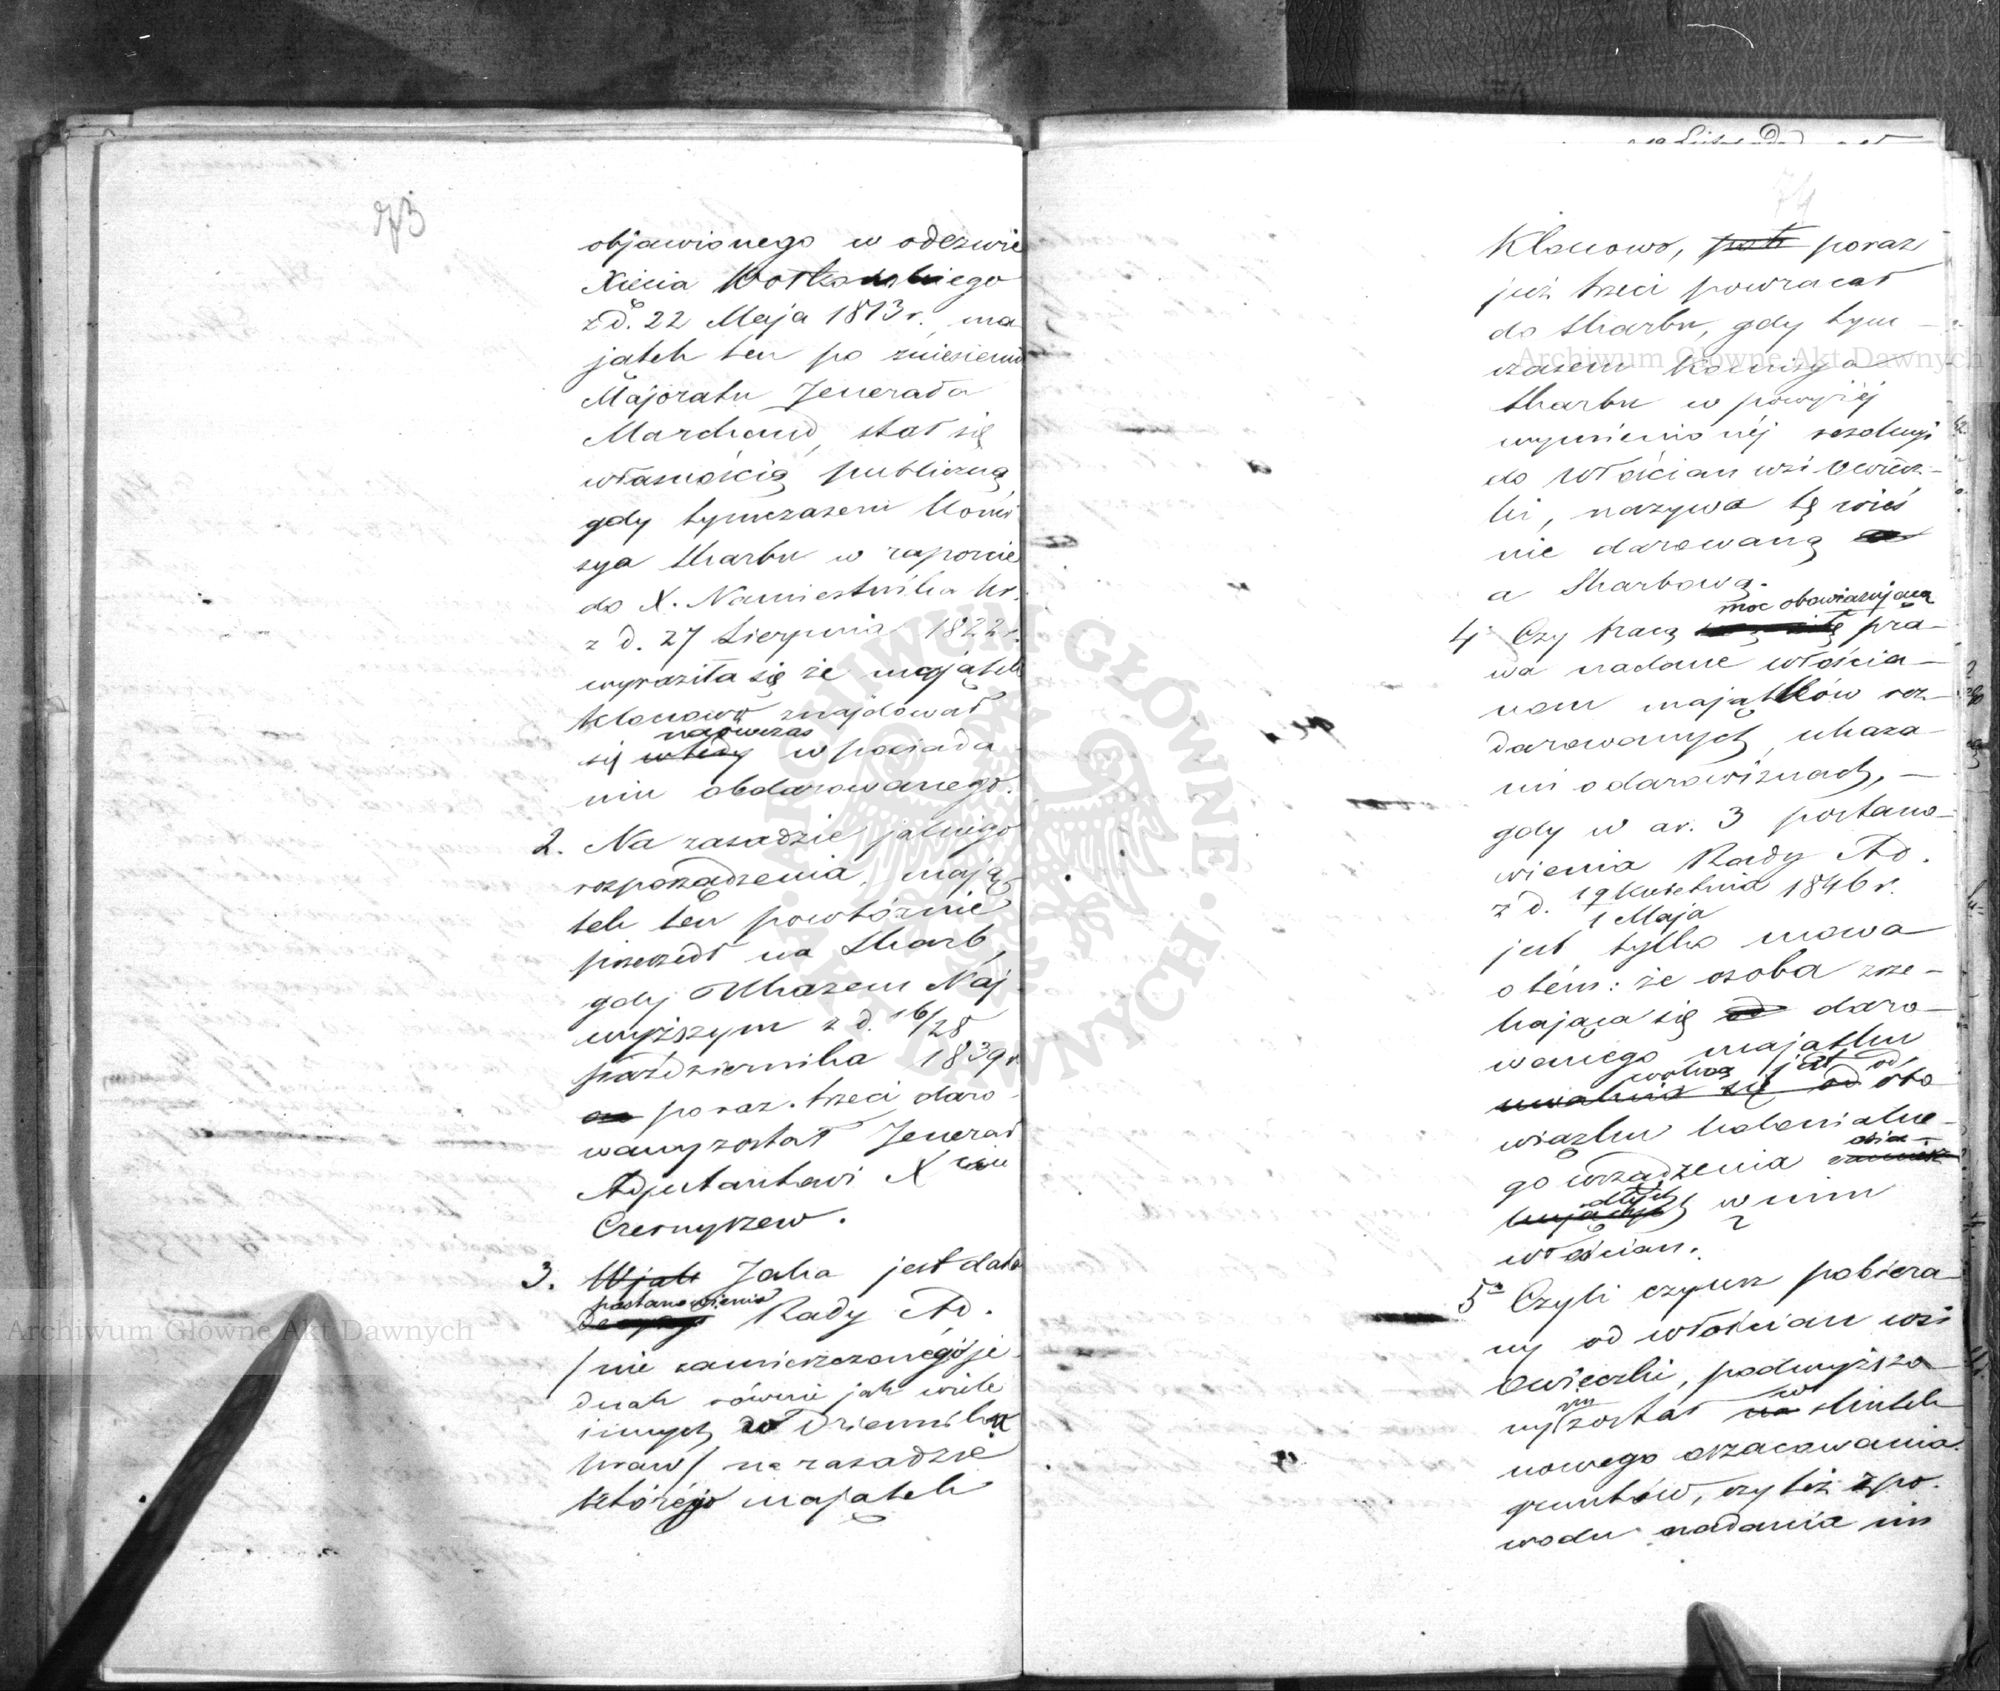 73
objawionego w odezwie
Xięcia Wołkońskiego
z d. 22 Maja 1813 r. ma
jątek ten po zniesieniu
Majoratu Jenerała
Marchand, stał się
własnością publiczną,
gdy tymczasem Komi
sya Skarbu w raporcie
do X. Namiestnika Kr.
z d. 27 Sierpnia 1822 r.
wyraziła się że majątek
Kłonowo znajdował
naówczas
się wtedy w posiada
niu obdarowanego.
2. Na zasadzie jakiego
rozporządzenia, mają
tek ten powtórnie
przeszedł na Skarb,
gdy Ukazem Naj
wyższym z d. 16/28
Października 1839 r.
po raz trzeci daro
wany został Jenerał
Adjutantowi X
Czernyszew.
3. Wjak Jaka jest data
postanowienia
Rady Ad.
/ nie zamieszczonego je
dnak równie jak wiele
innych w Dzienniku
praw / na zasadzie
którego majątek
74
Kłonowo, po raz
już trzeci powracał
do Skarbu, gdy tym-
czasem Komisya
Skarbu w powyżéj
wymienionéj rezolucyi
do Włościan wsi Owiecz-
ki, nazywa tę wieś
nie darowaną
a Skarbową.
moc obowiązującą
4. Czy tracą pra-
wa nadane włościa-
nom majątków roz-
darowanych, ukaza-
mi o darowiznach, -
gdy w ar. 3 postano-
wienia Rady Ad.
z d. 19 Kwietnia 1846 r.
1 Maja
jest tylko mowa
o tém: że osoba zrze-
kająca się od daro-
wanego majątku
wolną jest od
uwalnia się od obo
wiązku kolonialne-
go urządzenia osia-
dłych w nim
włościan?
5. Czyli czynsz pobiera
ny od włościan wsi
Owieczki, podwyższo
nym
ny został na skutek
w
nowego oszacowania
gruntów, czy też z po-
wodu nadania im
Archiwum Główne Akt Dawnych
Archiwum Główne Akt Dawnych
ARCHIWUM GŁÓWNE AKT DAWNYCH